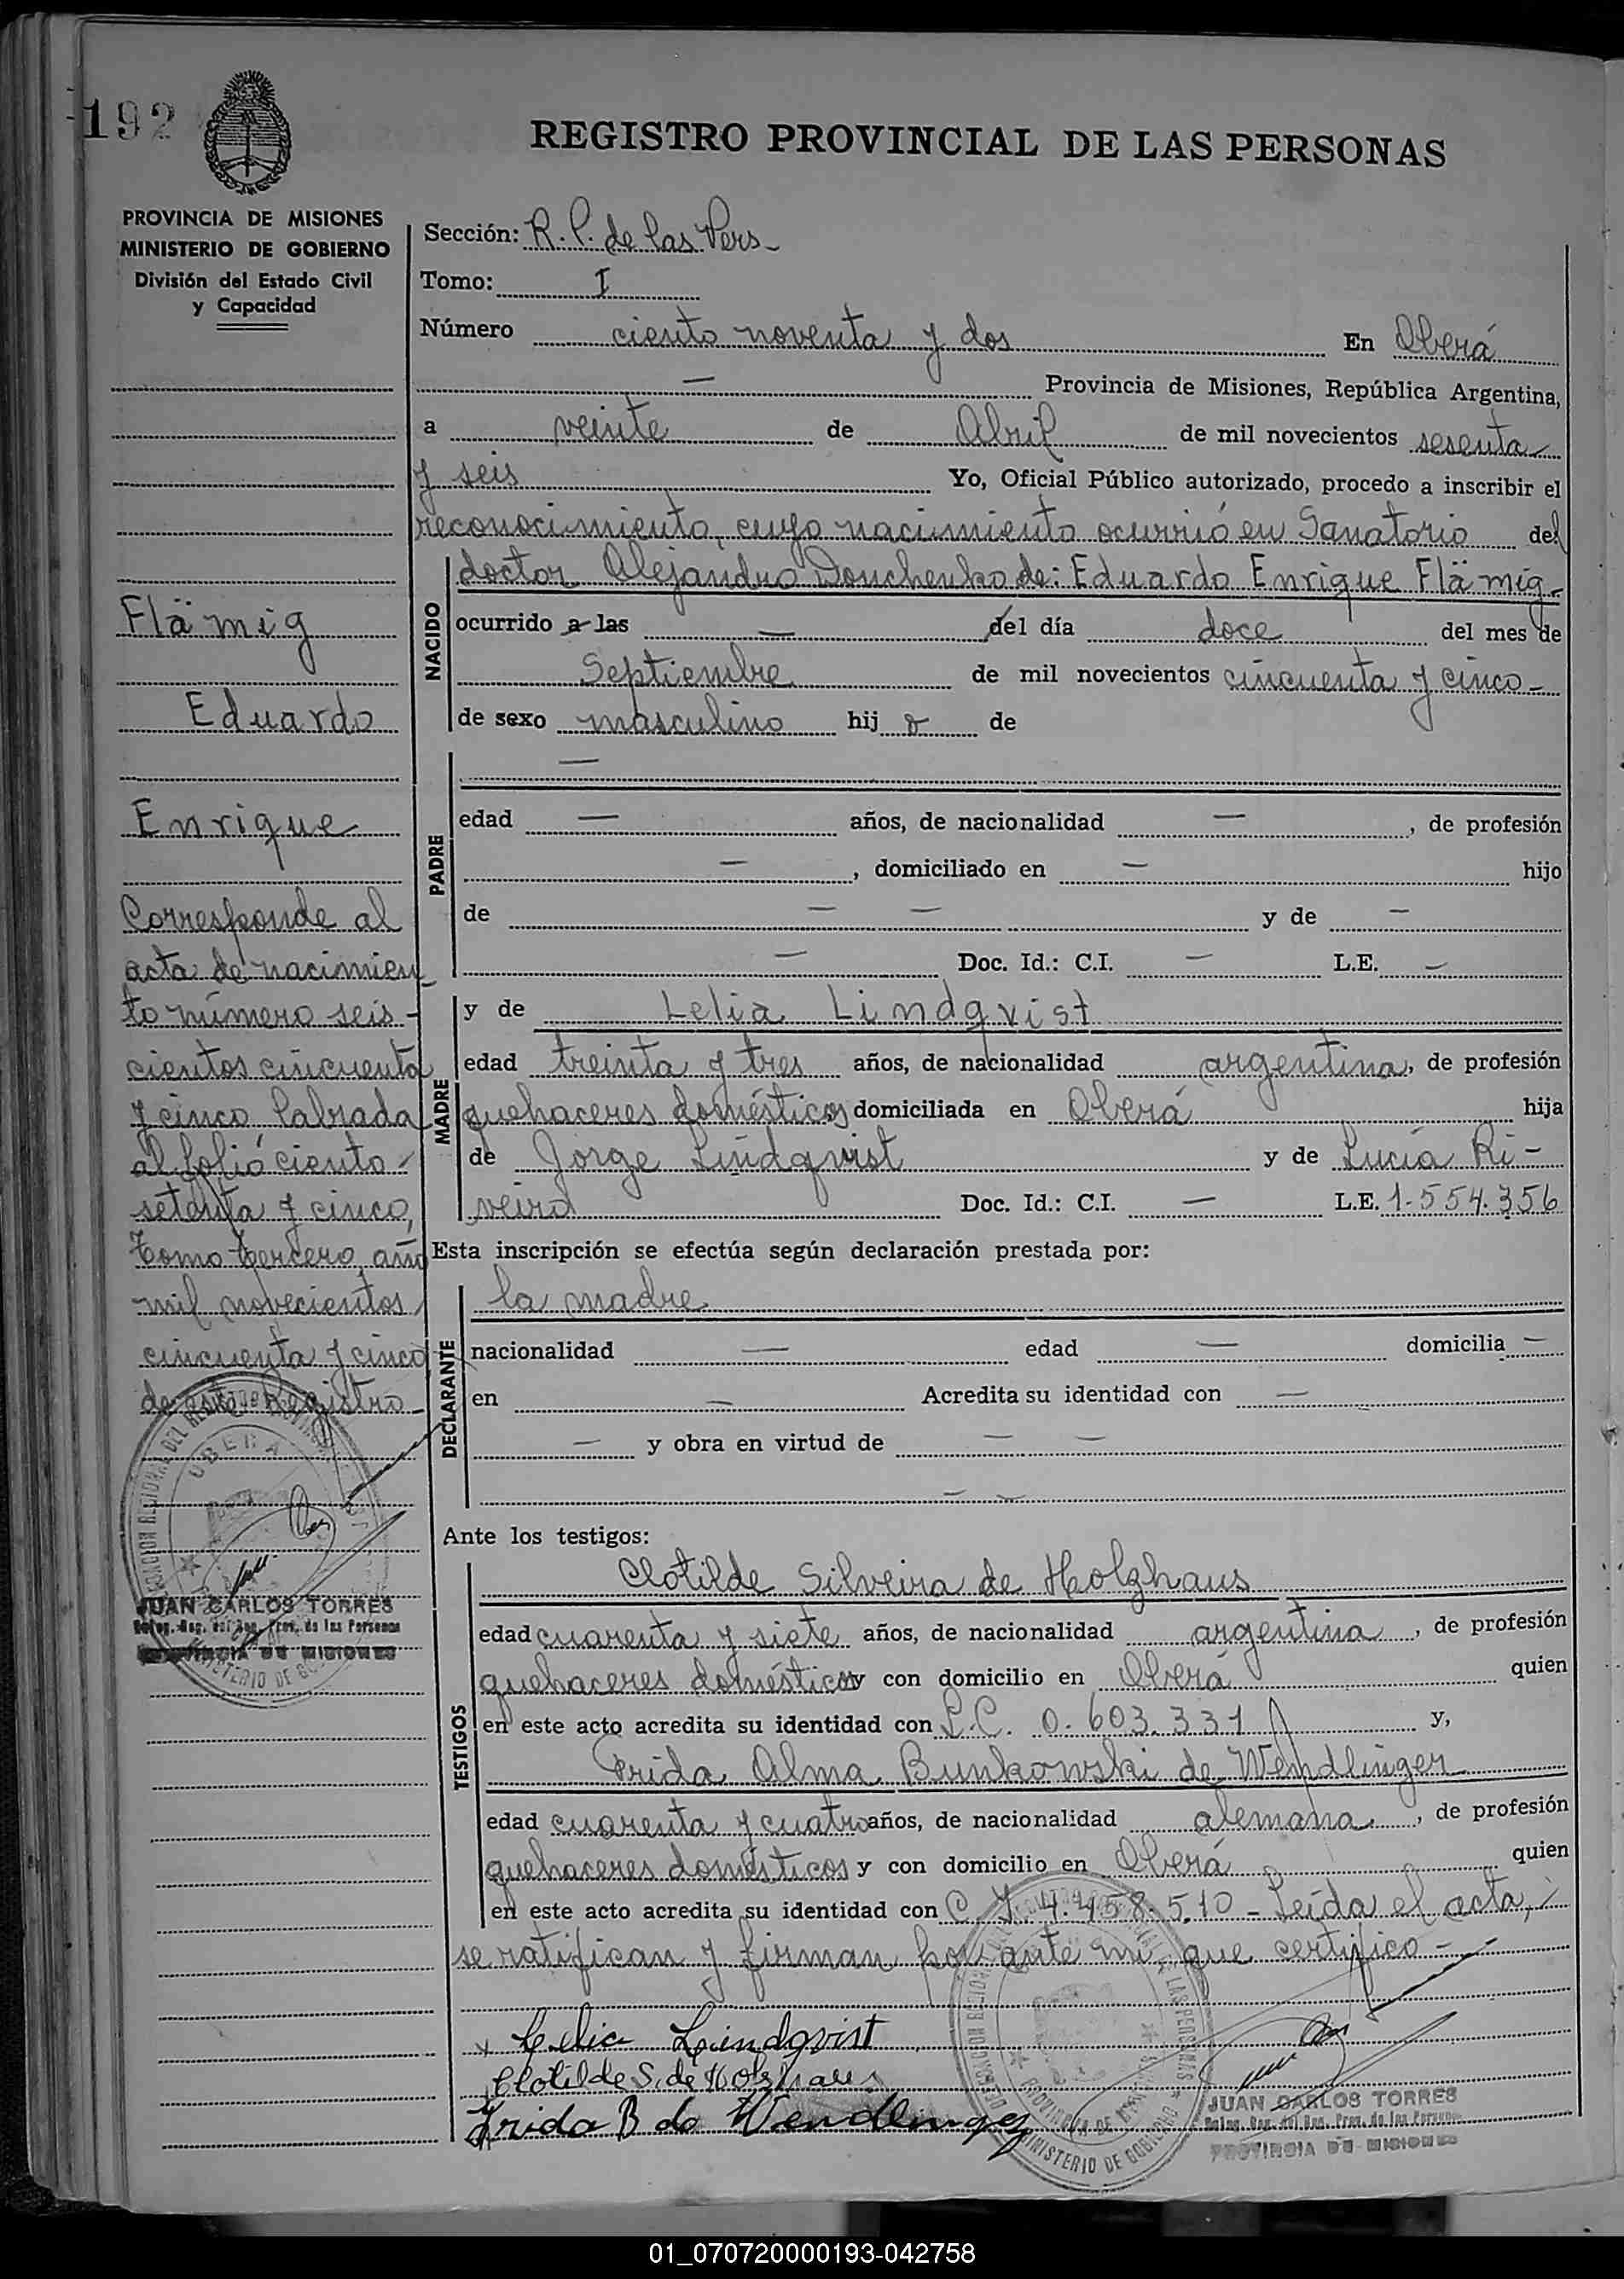 192
REGISTRO PROVINCIAL DE LAS PERSONAS
PROVINCIA DE MISIONES
MINISTERIO DE GOBIERNO
División del Estado Civil
y Capacidad
Flämig
Eduardo
Enrique
Corresponde al
acta de nacimien
to número seis-
cientos cincuenta
y cinco labrada
al folio ciento
setenta y cinco,
tomo tercero, año
mil novecientos
cincuenta y cinco
de este Registro
OBERA
JUAN CARLOS TORRES
Deleg. Reg. del Reg. Prov. de las Personas
PROVINCIA DE MISIONES
Sección: R. P. de las Pers-
Tomo: I
Número ciento noventa y dos En Oberá
— Provincia de Misiones, República Argentina,
a veinte de Abril de mil novecientos sesenta
y seis Yo, Oficial Público autorizado, procedo a inscribir el
reconocimiento, cuyo nacimiento ocurrió en Sanatorio del
NACIDO
doctor Alejandro Douchenko de: Eduardo Enrique Flämig-
ocurrido a las — del día doce del mes de
Septiembre de mil novecientos cincuenta y cinco-
de sexo masculino hij o de
PADRE
—
edad — años, de nacionalidad — , de profesión
— , domiciliado en — hijo
de — — y de —
— Doc. Id.: C.I. — L.E. —
MADRE
y de Lelia Lindqvist
edad treinta y tres años, de nacionalidad argentina, de profesión
quehaceres domésticos domiciliada en Oberá hija
de Jorge Lindqvist y de Lucía Ri-
veiro Doc. Id.: C.I. — L.E. 1.554.356
Esta inscripción se efectúa según declaración prestada por:
DECLARANTE
la madre
nacionalidad — edad — domicilia —
en — Acredita su identidad con —
— y obra en virtud de — —
— —
Ante los testigos:
TESTIGOS
Clotilde Silveira de Holzhaus
edad cuarenta y siete años, de nacionalidad argentina , de profesión
quehaceres domésticos y con domicilio en Oberá quien
en este acto acredita su identidad con L.C. 0.603.331 y,
Frida Alma Bunkowski de Wendlinger
edad cuarenta y cuatro años, de nacionalidad alemana , de profesión
quehaceres domésticos y con domicilio en Oberá quien
en este acto acredita su identidad con C. I. 4.458.510 - Leída el acta,
se ratifican y firman por ante mi que certifico-
x Lelia Lindqvist
Clotilde S. de Holzhaus
Frida B de Wendlinger
MINISTERIO DE GOBIERNO
JUAN CARLOS TORRES
Deleg. Reg. del Reg. Prov. de las Personas
PROVINCIA DE MISIONES
01_070720000193-042758